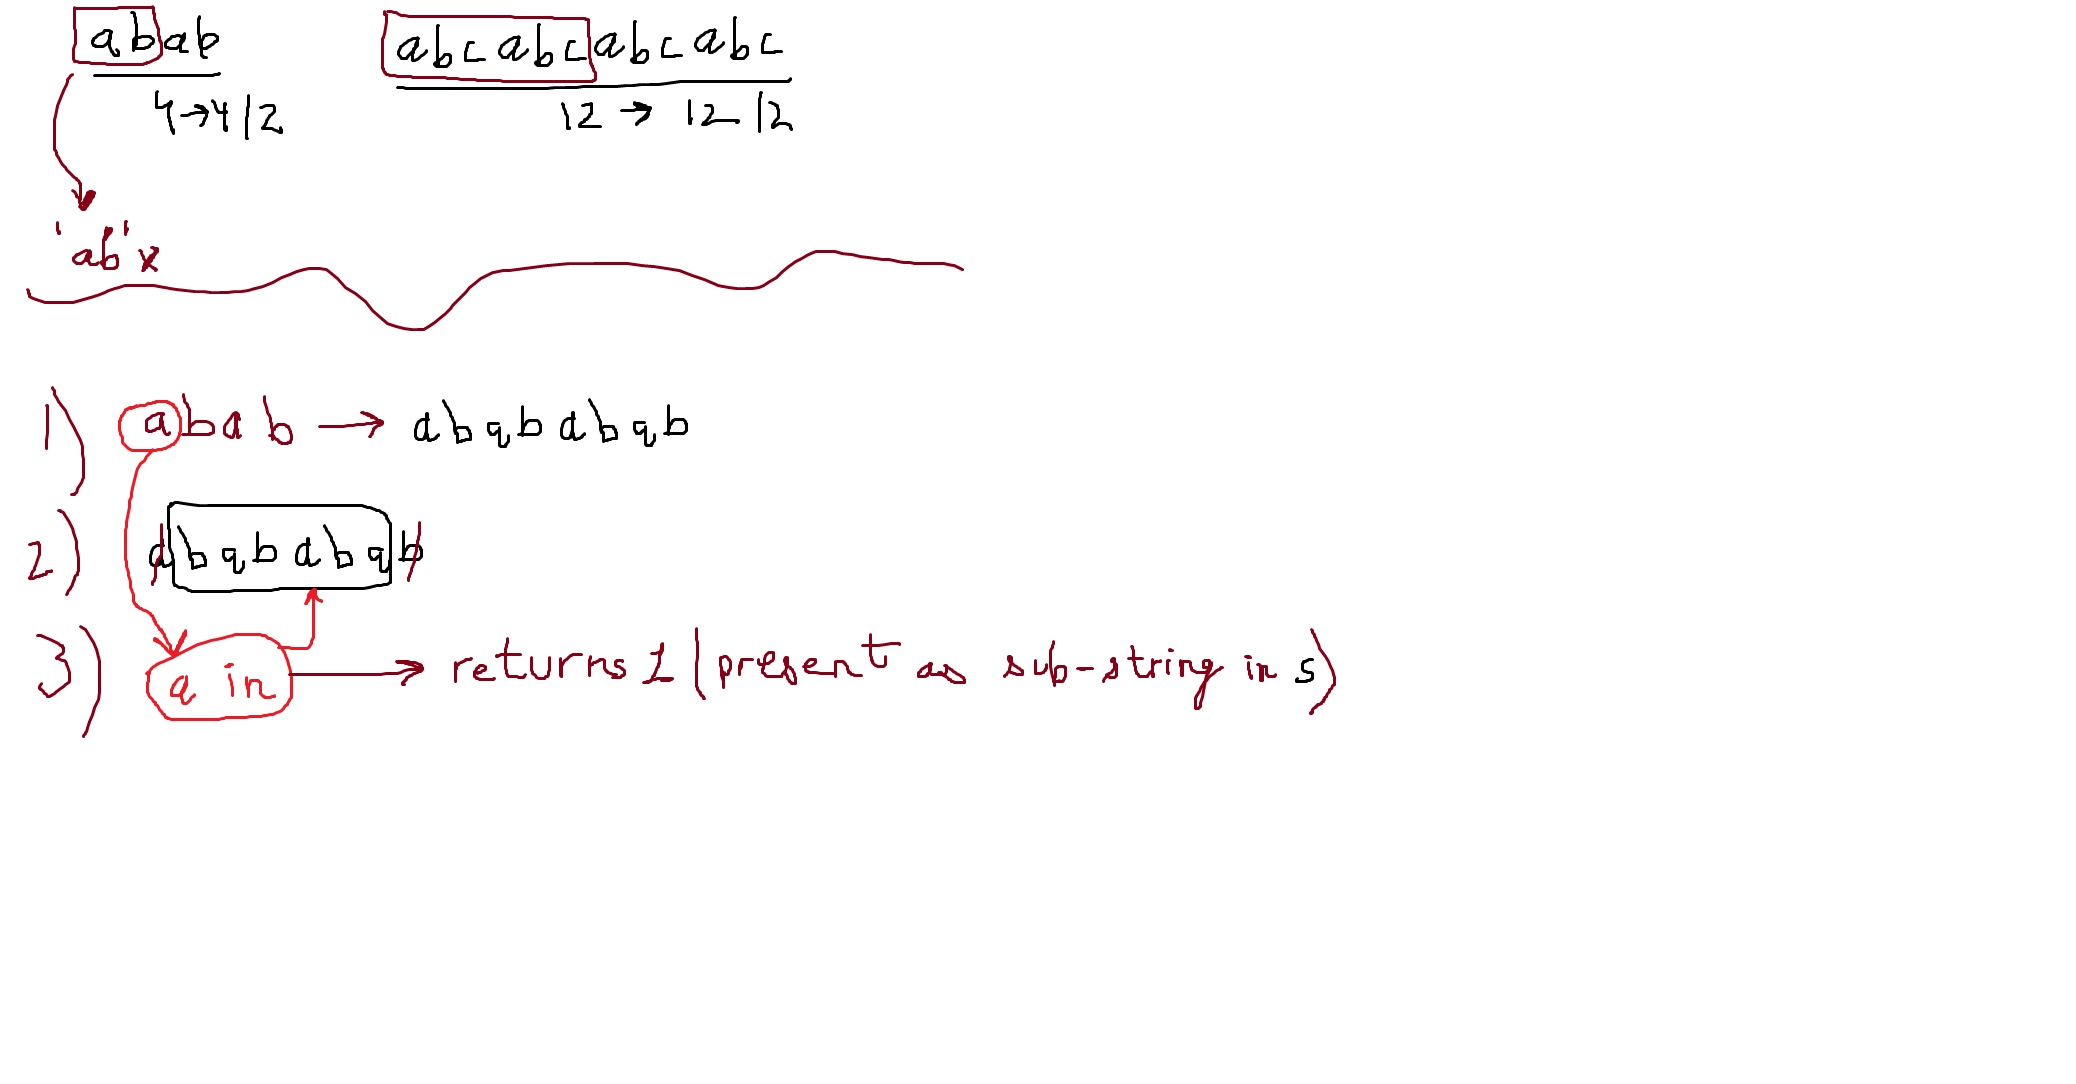 abab abcabcabcabc
4→4/2 12 → 12/2
'ab'x
1) abab → abababab
2) abababab
3) a in → returns 1 (present as sub-string in s)